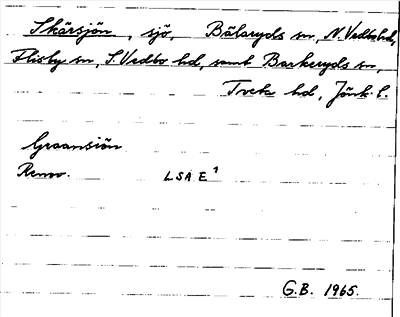 Skärsjön, sjö, Bälaryds sn, N. Vedbo hd,
Flisby sn, S. Vedbo hd, samt Barkeryds sn,
Tveta hd, Jönk. l.
Graansiön
Renov. LSA E¹
G.B. 1965.